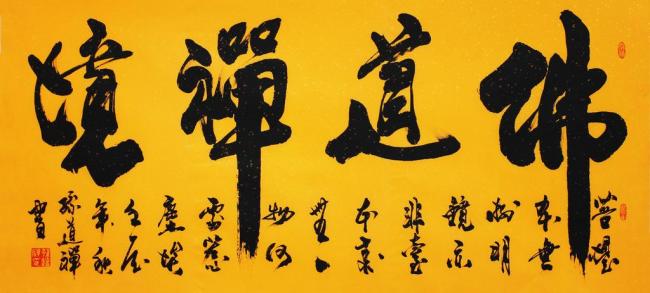 佛道禪境
菩提
本無
樹明
鏡亦
非臺
本來
無一
物何
處惹
塵埃
年秋
道禪